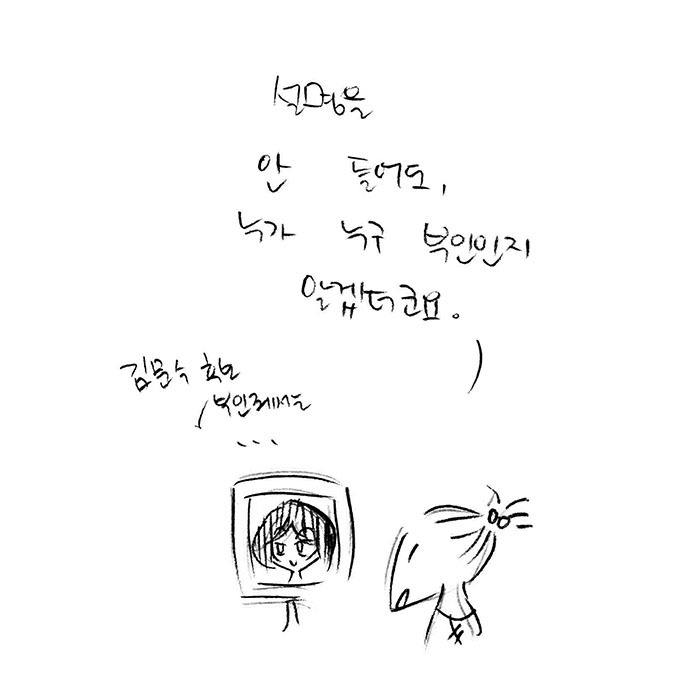 설명을
안 들어도,
누가 누구 부인인지
알겠더라고요.
김문수 후보
부인께서는
...